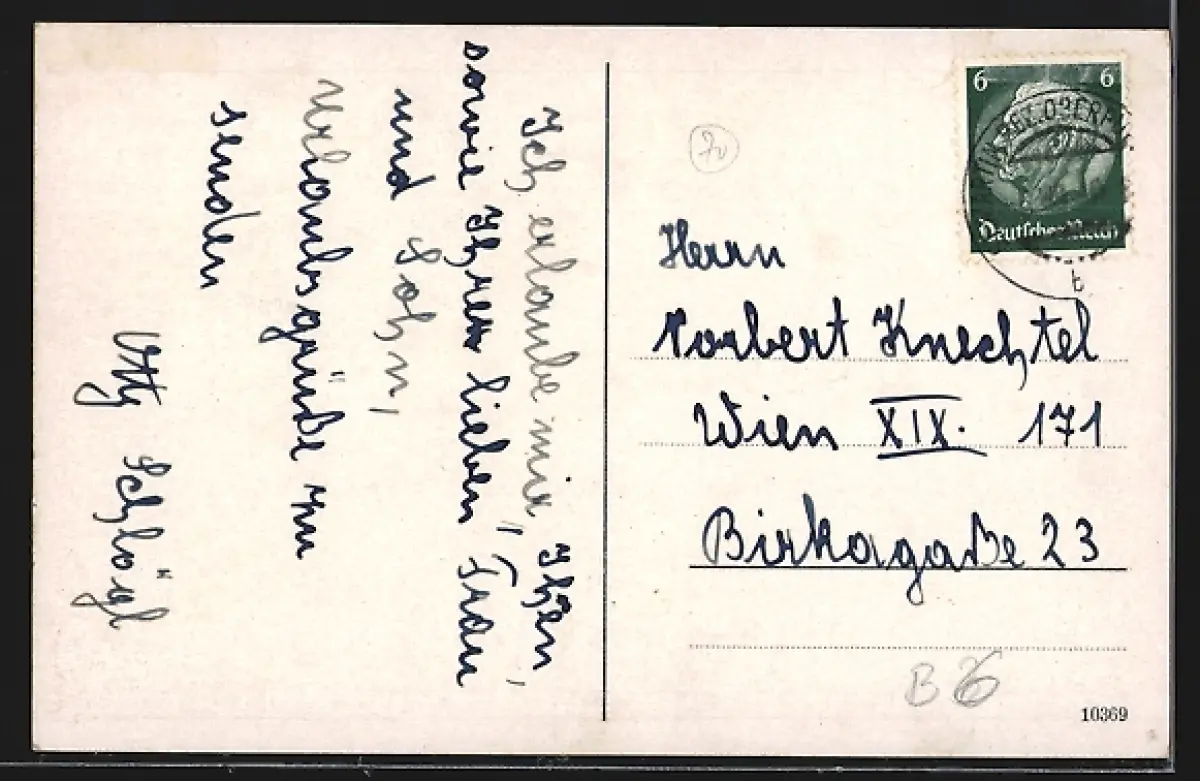 Ich erlaube mir, Ihen,
sowie Ihrer lieben Frau
und Sohn,
Urlaubsgrüße zu
senden
Schlögl
6 6
Deutsches Reich
t
Herrn
Norbert Knechtel
Wien XIX. 171
Birkagaße 23
B 26
10369